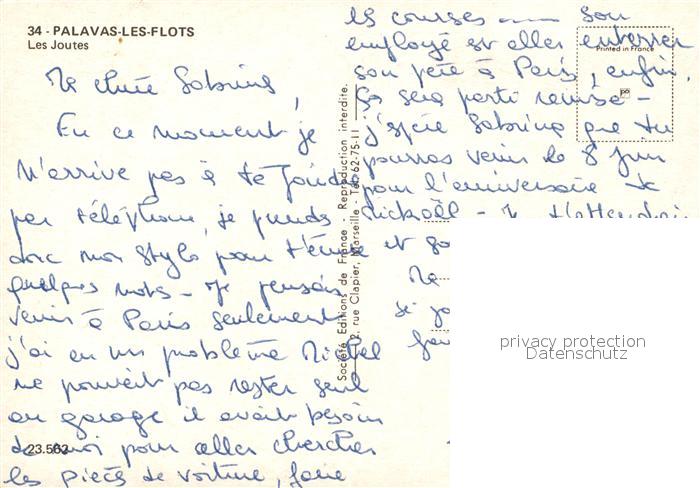 34 - PALAVAS-LES-FLOTS
Les Joutes
Ma chère Sabrina,
En ce moment je
n'arrive pas à te joindre
par téléphone, je prends
donc mon stylo pour t'écrire
quelques mots - Je pensais
venir à Paris seulement
j'ai eu un problème Michel
ne pouvait pas rester seul
au garage il avait besoin
de moi pour aller chercher
les pièces de voiture, faire
23.563
Société Editions de France - Reproduction interdite.
2, rue Clapier, Marseille - Tél. 62-75-11
Printed in France
les courses son
employé est allé enterrer
son père à Paris, enfin,
ça sera partie remise -
j'espère Sabrina que tu
pourras venir le 8 Juin
pour l'anniversaire de
Mickaël - Je t'attendrai
et
privacy protection
Datenschutz